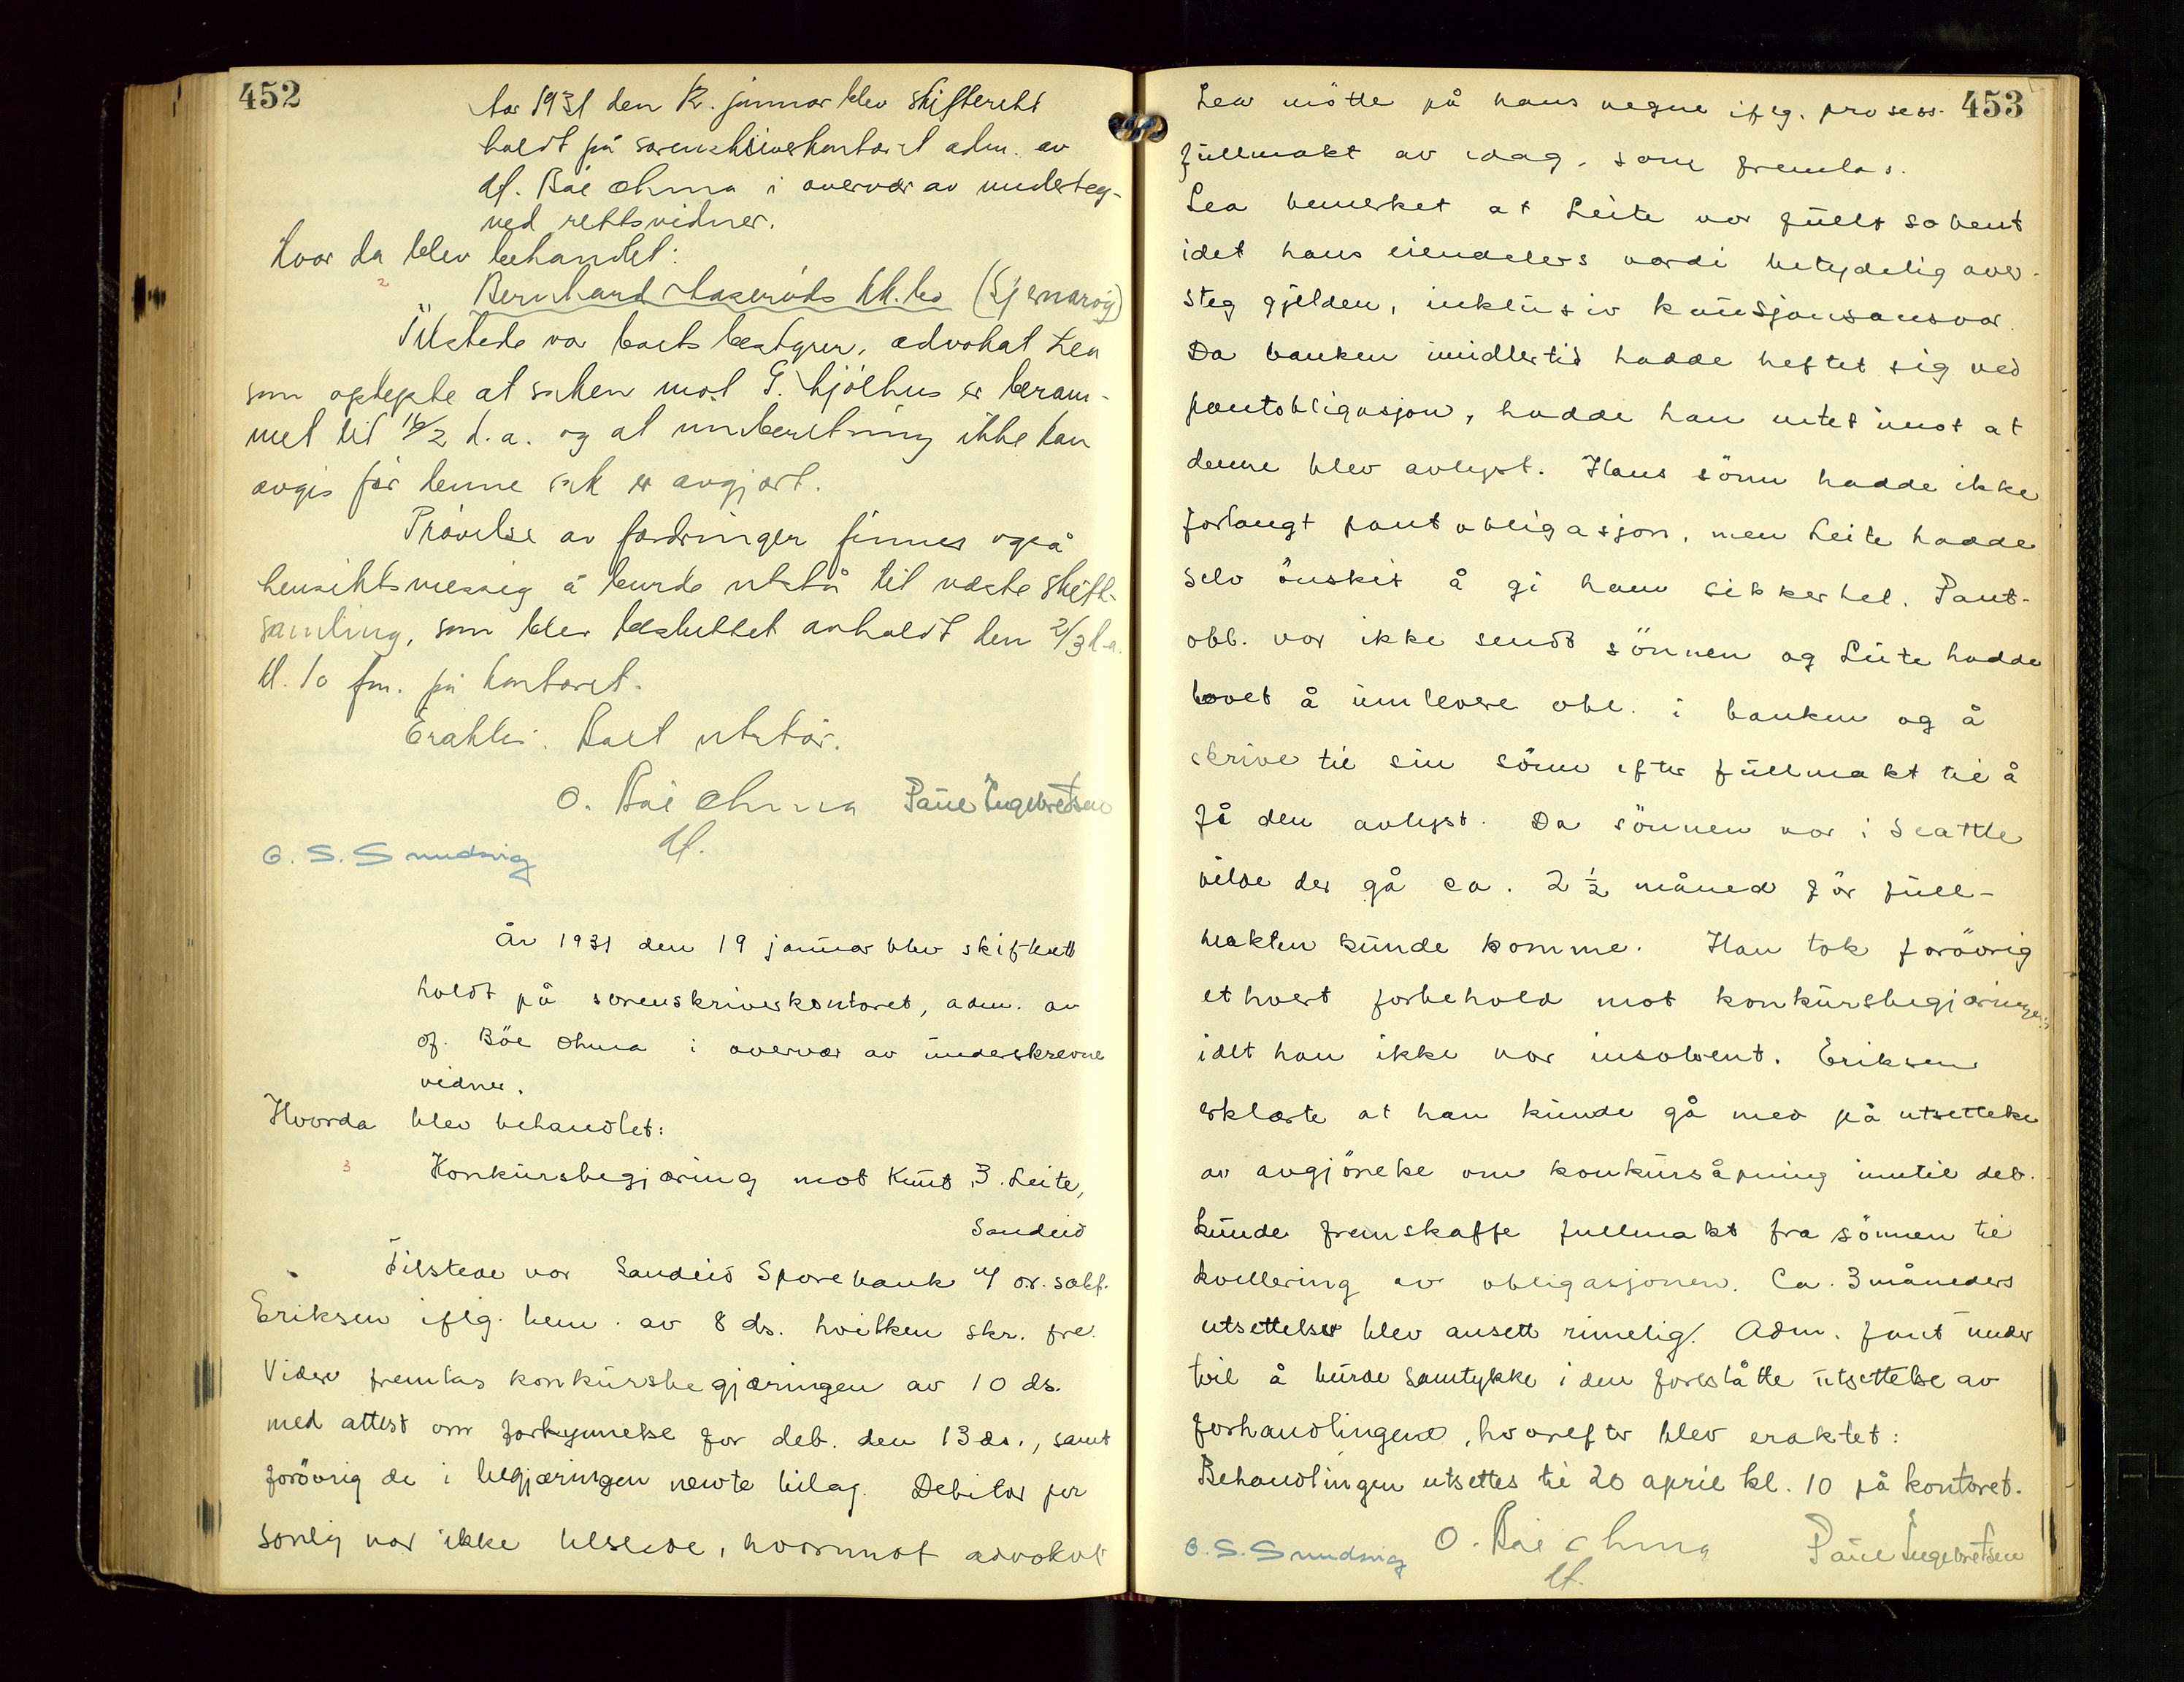 452
Aar 1931 den 12. januar blev skifterett
holdt på sorenskriverkontoret adm. av
df. Böe Ohma i overvær av underteg-
ned rettsvidner.
Hvor da blev behandlet:
2 Bernhard Haserøds kk.bo (Sjernarøy)
Tilstede var boets bestyrer, advokat Lea
som oplyste at saken mot G. Kjölhus er beram-
met til 16/2 d.a. og at innberetning ikke kan
avgis før denne sak er avgjort.
Prövelse av fordringer finnes også
hensiktsmessig å burde utstå til næste skifte-
samling, som blev besluttet avholdt den 2/3 d.a.
kl. 10 fm. på kontoret.
Eraktes: Boet utstår.
O. Böe Ohma Paul Ingebretsen
df.
G. S. Smedvig
År 1931 den 19 januar blev skifterett
holdt på sorenskriverkontoret, adm. av
df. Böe Ohma i overvær av underskrevne
vidner.
Hvorda blev behandlet:
3 Konkursbegjæring mot Knut 3. Leite,
Sandeid
Tilstede var Sandeid Sparebank v/ o.r. sakf.
Eriksen iflg. bem. av 8 ds. hvilken skr. fre.
Videre fremlas konkursbegjæringen av 10 ds.
med attest om forkynnelse for deb. den 13 ds., samt
forövrig de i begjæringen nevnte bilag. Debitor per
sonlig var ikke tilstede, hvorimot advokat
453
Lea mötte på hans vegne iflg. prosess-
fullmakt av idag, som fremlas.
Lea bemerket at Leite var fullt solvent
idet hans eiendelers verdi betydelig over-
steg gjelden, inklusiv kausjonsansvar.
Da banken imidlertid hadde heftet sig ved
pantobligasjon, hadde han intet imot at
denne blev avlyst. Hans sönn hadde ikke
forlangt pantobligasjon, men Leite hadde
selv önsket å gi ham sikkerhet. Pant-
obl. var ikke sendt sönnen og Leite hadde
lovet å innlevere obl. i banken og å
skrive til sin sönn efter fullmakt til å
få den avlyst. Da sönnen var i Seattle
vilde der gå ca. 2 ½ måned för full-
makten kunde komme. Han tok forövrig
ethvert forbehold mot konkursbegjæringen,
idet han ikke var insolvent. Eriksen
erklærte at han kunde gå med på utsettelse
av avgjörelse om konkursåpning inntil deb.
kunde fremskaffe fullmakt fra sönnen til
kvittering av obligasjonen. Ca. 3 måneders
utsettelse blev ansett rimelig. Adm. fant under
tvil å burde samtykke i den foreslåtte utsettelse av
forhandlingene, hvorefter blev eraktet:
Behandlingen utsettes til 20 april kl. 10 på kontoret.
G. S. Smedvig O. Böe Ohma Paul Ingebretsen
df.